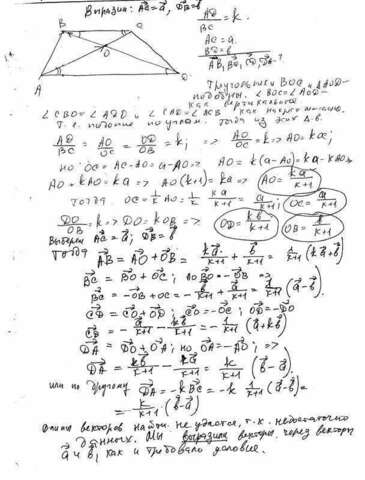 Вырази: AC⃗=a⃗, DB⃗=b⃗
B C
O
A D
AD/BC = k.
AC=a.
BD=b
AB⃗, BC⃗, CD⃗, DA⃗-?
Треугольники BOC и AOD-
подобны. ∠BOC=∠AOD-
как вертикальные
∠CBO=∠ADO и ∠CAD=∠ACB как накрест лежащие.
т.е. подобие по углам. Тогда из этих Δ-в.
AD/BC = AO/OC = DO/OB = k; => AO/OC = k => AO=kOC;
но OC=AC-AO=a-AO=> AO=k(a-AO)=ka-kAO=>
AO+kAO=ka => AO(k+1)=ka => AO=ka/k+1
тогда OC=1/k AO=1/k · ka/k+1 = a/k+1; OC=a/k+1
DO/OB=k=>DO=kOB => OD=kb/k+1 OB=b/k+1
Выберем AC⃗=a⃗; DB⃗=b⃗
Тогда AB⃗=AO⃗+OB⃗= ka⃗/k+1 + b⃗/k+1 = 1/k+1 (ka⃗+b⃗)
BC⃗=BO⃗+OC⃗; но BO⃗=-OB⃗ =>
BC⃗=-OB⃗+OC⃗=-b⃗/k+1 + a⃗/k+1 = 1/k+1 (a⃗-b⃗).
CD⃗=CO⃗+OD⃗; CO⃗=-OC⃗; OD⃗=-DO⃗
CD⃗=-a⃗/k+1 - kb⃗/k+1 = -1/k+1 (a⃗+kb⃗)
DA⃗=DO⃗+OA⃗; но OA⃗=-AO⃗; =>
DA⃗=kb⃗/k+1 - ka⃗/k+1 = k/k+1 (b⃗-a⃗).
или по другому DA⃗=-kBC⃗=-k 1/k+1 (a⃗-b⃗)=
= k/k+1 (b⃗-a⃗)
длины векторов найти не удастся, т.к. недостаточно
данных. Мы выразили векторы через векторы
a⃗ и b⃗, как и требовало условие.